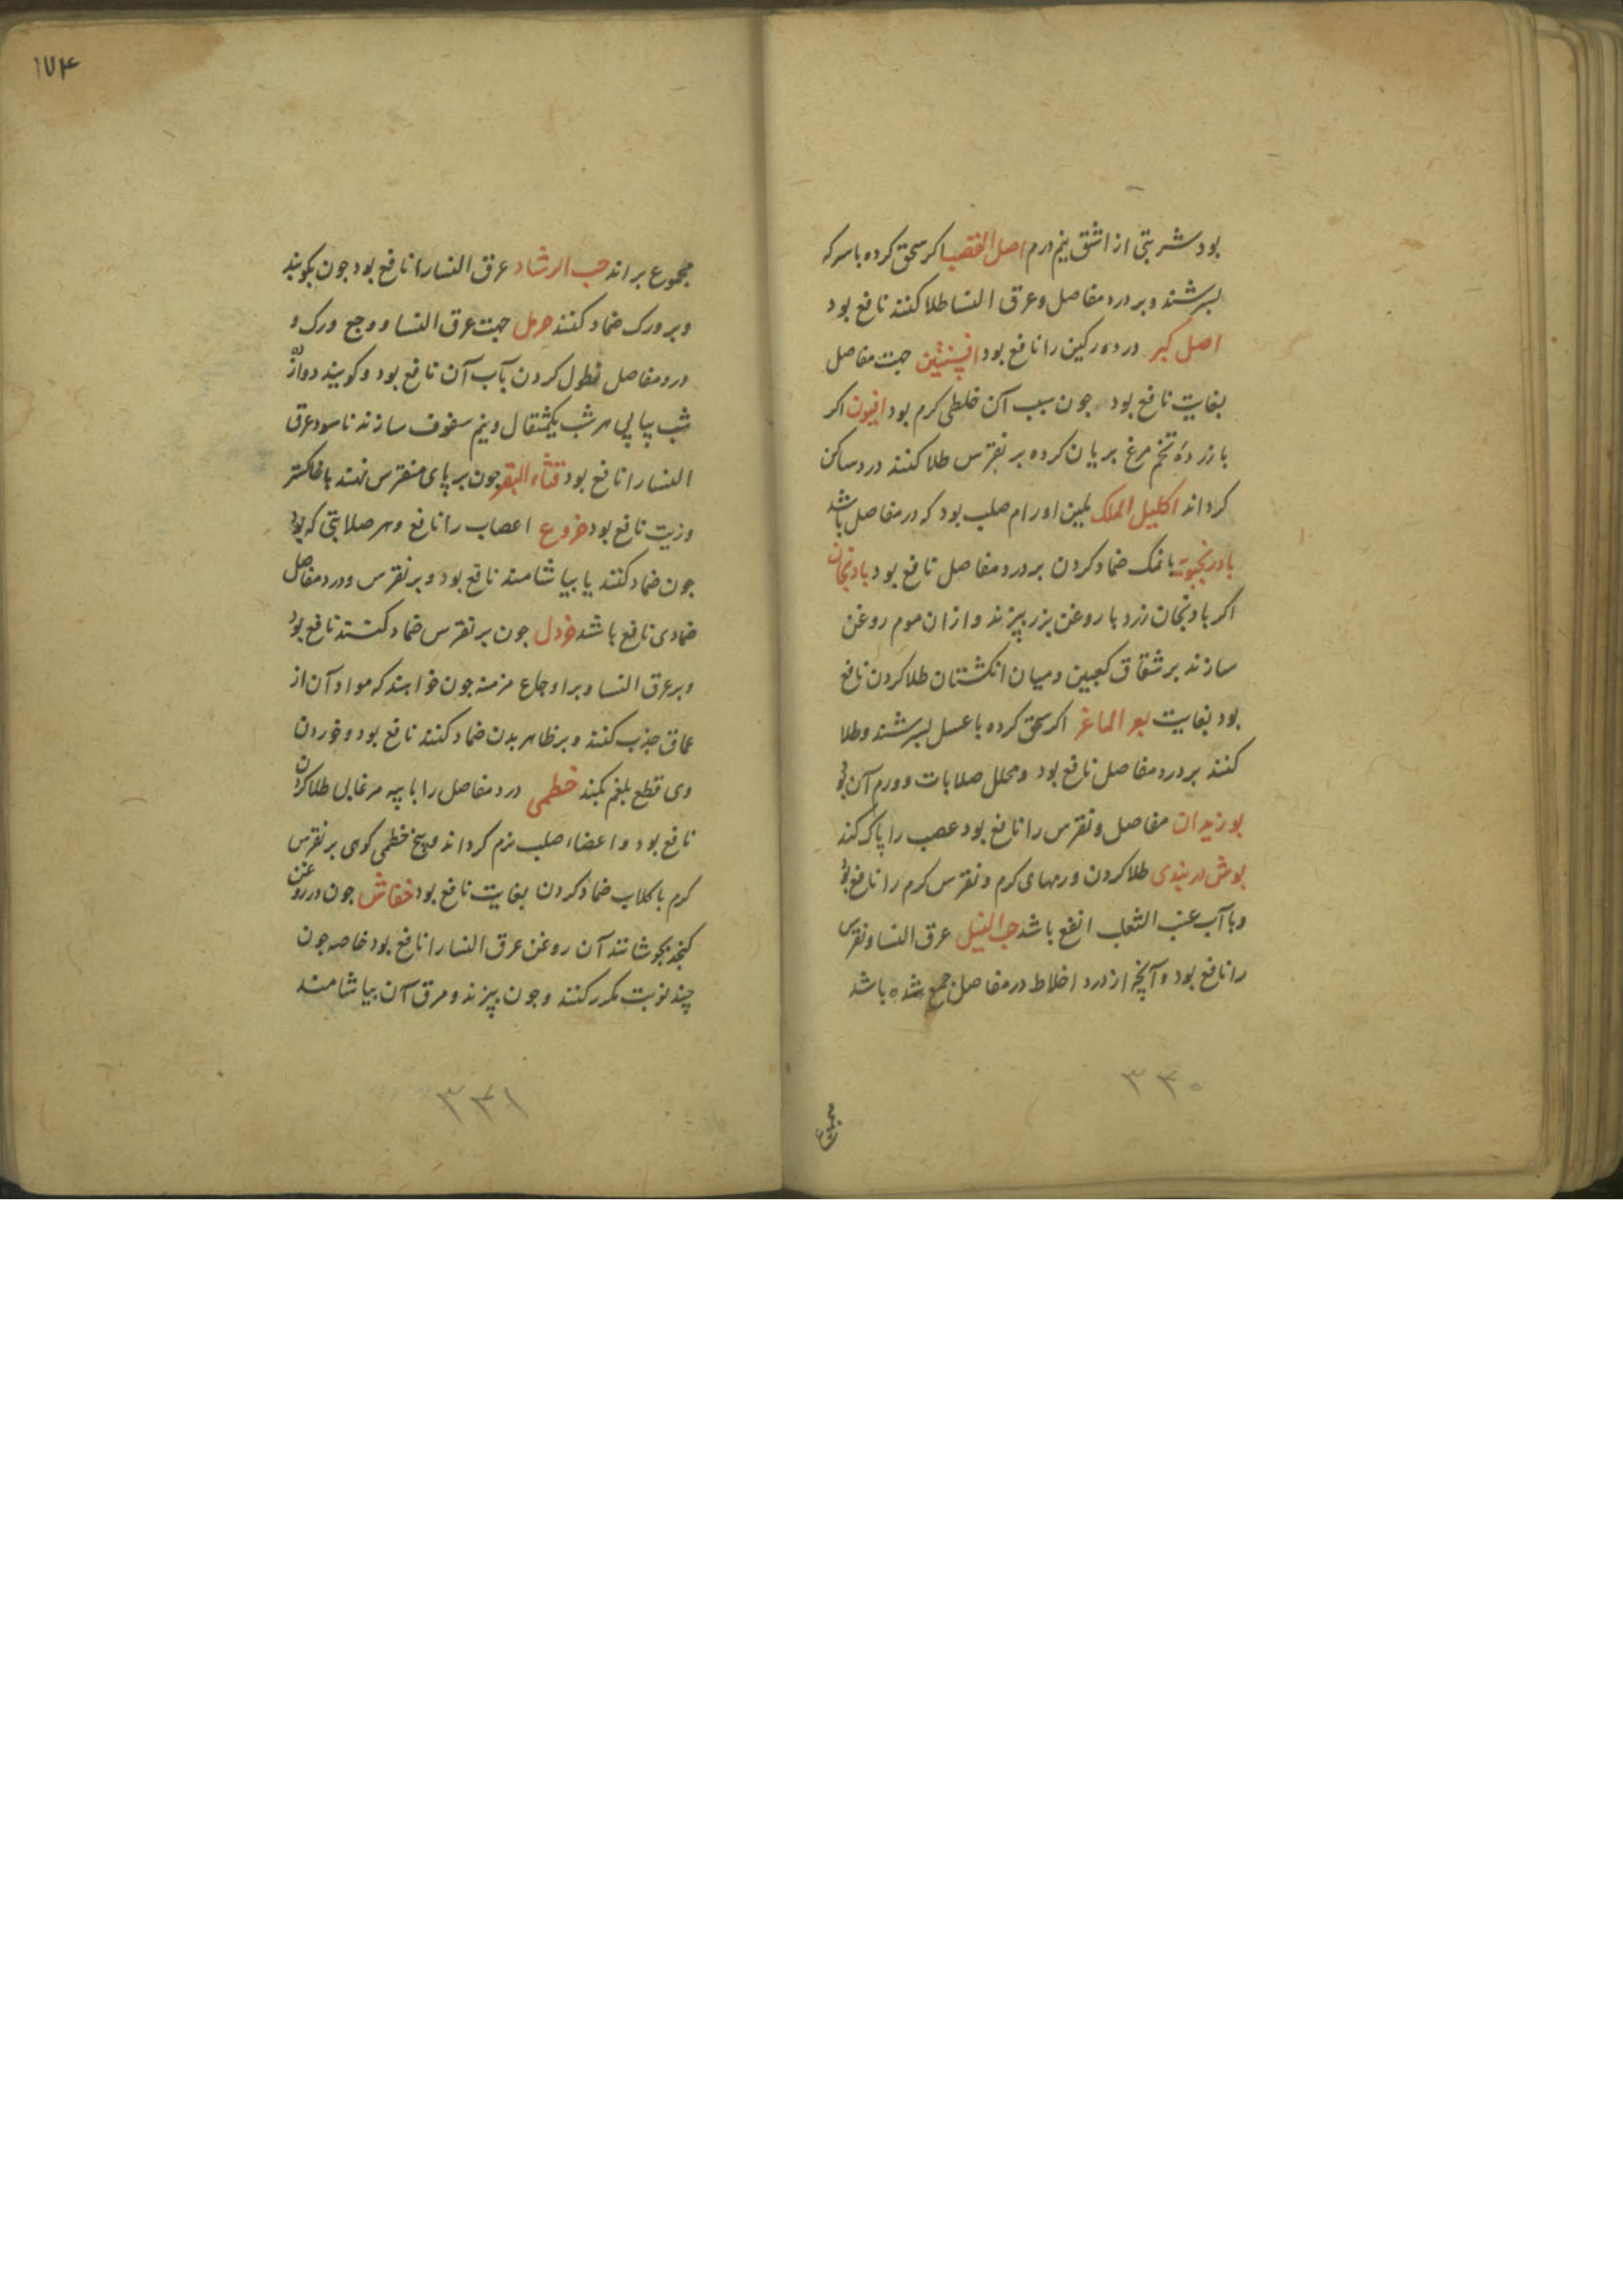 بود شربتی از اشق نیم درم اصل القصب اکر سحق کرده با سرکه
بسرشند و بر درد مفاصل و عرق النسا طلا کنند نافع بود
اصل کبر درد ورکین را نافع بود افسنتین جهت مفاصل
بغایت نافع بود جون سبب آن خلطی کرم بود افیون اکر
با زردهٔ تخم مرغ بریان کرده بر نقرس طلا کنند درد ساکن
کرداند اکلیل الملک ملین اورام صلب بود که در مفاصل باشد
بادرنجبویه با نمک ضماد کردن بر درد مفاصل نافع بود بادنجان
اکر بادنجان زرد با روغن بزر بپزند و از ان موم روغن
سازند بر شقاق کعبین و میان انکشتان طلا کردن نافع
بود بغایت بعر الماعز اکر سحق کرده با عسل بسرشند و طلا
کنند بر درد مفاصل نافع بود و محلل صلابات و ورم آن بود
بوزیدان مفاصل و نقرس را نافع بود عصب را پاک کند
بوش دربندی طلا کردن ورمهای کرم و نقرس کرم را نافع بود
و با آب عنب الثعلب انفع باشد حب النیل عرق النسا و نقرس
را نافع بود و آنچه از درد اخلاط در مفاصل جمع شده باشد
۳۴۰
مجموع
۱۷۴
مجموع براند حب الرشاد عرق النسا را نافع بود جون بکوبند
و بر ورک ضماد کنند حرمل جهت عرق النسا و وجع ورک و
درد مفاصل نطول کردن بآب آن نافع بود و کویند دوازده
شب پیاپی هر شب یکمثقال و نیم سفوف سازند ناسوده عرق
النسا را نافع بود قثاء البقر جون بر پای منقرس نهند با خاکستر
و زیت نافع بود خروع اعصاب را نافع و هر صلابتی که بود
جون ضماد کنند یا بیاشامند نافع بود و بر نقرس و درد مفاصل
ضمادی نافع باشد خردل جون بر نقرس ضماد کنند نافع بود
و بر عرق النسا و بر اوجاع مزمنه جون خواهند که مواد آن از
عماق جذب کنند و بر ظاهر بدن ضماد کنند نافع بود و خوردن
وی قطع بلغم بکند خطمی درد مفاصل را با پیه مرغابی طلا کردن
نافع بود و اعضاء صلب نرم کرداند و بیخ خطمی کوهی بر نقرس
کرم با کلاب ضماد کردن بغایت نافع بود خفاش جون در روغن
کنجد بجوشانند آن روغن عرق النسا را نافع بود خاصه جون
چند نوبت مکرر کنند و جون بپزند و مرق آن بیاشامند
۳۴۱